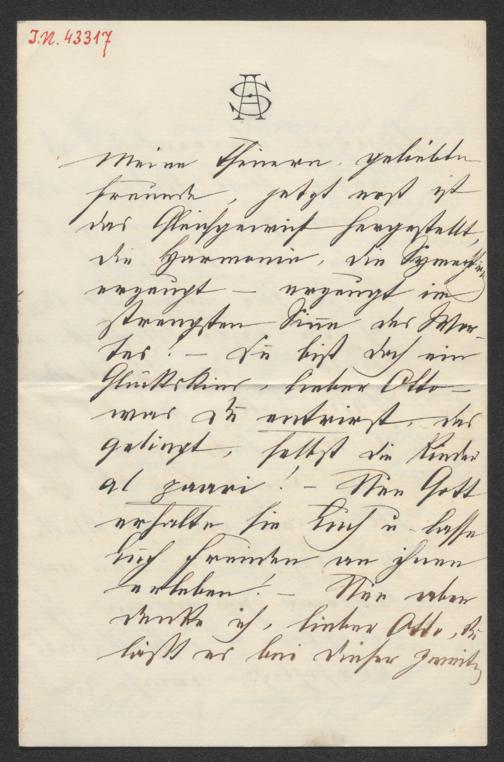 J.N. 43317
AS
Meine theuern, geliebten
Freunde, jetzt erst ist
das Gleichgewicht hergestellt,
die Harmonie, die Symetrie
erzeugt – erzeugt im
strengsten Sinne des Wor-
tes! – Du bist doch ein
Glückskind, lieber Otto –
was Du entrirst, das
gelingt, selbst die Kinder
al paari! – Nun Gott
erhalte sie Euch u. lasse
Euch Freuden an ihnen
erleben! – Nun aber
denke ich, lieber Otto, Du
läßt es bei dieser zweiten